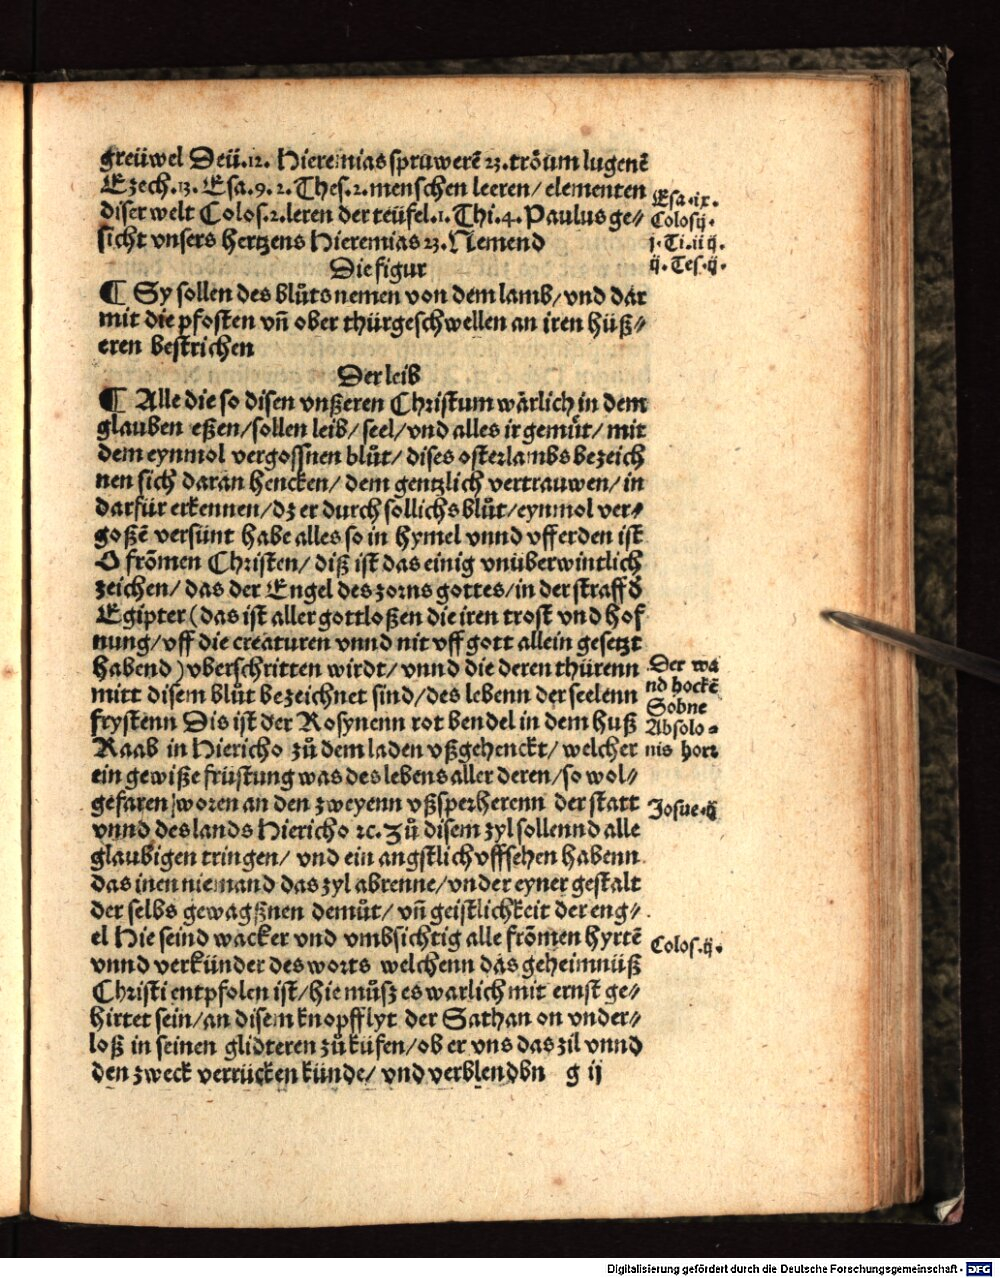 greüwel Deü.12. Hieremias spruwerē 23. trōum lugenē
Ezech.13. Esa.9. 2.Thes.2. menschen leeren/ elementen
diser welt Colos.2. leren der teüfel.1. Thi.4. Paulus ge⸗
sicht vnsers hertzens Hieremias 23. Nemend
Esa.ix.
Colos ij.
j. Ti. iiij.
ij. Tes. ij.
Die figur
¶ Sy sollen des blůts nemen von dem lamb/ vnd dar
mit die pfosten vñ ober thürgeschwellen an iren hüß⸗
eren bestrichen
Der leib
¶ Alle die so disen vnßeren Christum wārlich in dem
glauben eßen/ sollen leib/ seel/ vnd alles ir gemůt/ mit
dem eynmol vergossnen blůt/ dises osterlambs bezeich
nen sich daran hencken/ dem gentzlich vertrauwen/ in
darfür erkennen/ dz er durch sollichs blůt/ eynmol ver⸗
goßē versünt habe alles so in hymel vnnd vff erden ist
O frōmen Christen/ diß ist das einig vnüberwintlich
zeichen/ das der Engel des zorns gottes/ in der straff d̄
Egipter (das ist aller gottloßen die iren trost vnd hof
nung/ vff die creaturen vnnd nit vff gott allein gesetzt
habend) vberschritten wirdt/ vnnd die deren thürenn
mitt disem blůt bezeichnet sind/ des lebenn der seelenn
frystenn Dis ist der Rosynenn rot bendel in dem huß
Raab in Hiericho zů dem laden vßgehenckt/ welcher
ein gewiße früstung was des lebens aller deren/ so wol⸗
gefaren woren an den zweyenn vßsperherenn der statt
vnnd des lands Hiericho ꝛc. Zů disem zyl sollennd alle
glaubigen tringen/ vnd ein angstlich vffsehen habenn
das inen niemand das zyl abrenne/ vnder eyner gestalt
der selbs gewagßnen demůt/ vñ geistlichkeit der eng⸗
el Hie seind wacker vnd vmbsichtig alle frōmen hyrtē
vnnd verkünder des worts welchenn das geheimnüß
Christi entpfolen ist/ hie můsz es warlich mit ernst ge⸗
hirtet sein/ an disem knopff lyt der Sathan on vnder⸗
loß in seinen glidteren zů küfen/ ob er vns das zil vnnd
den zweck verrücken künde/ vnd verblendbn g ij
Der wa
nd hockē
Sohne
Absolo⸗
nis hort
Josue.ij
Colos.ij.
Digitalisierung gefördert durch die Deutsche Forschungsgemeinschaft - DFG